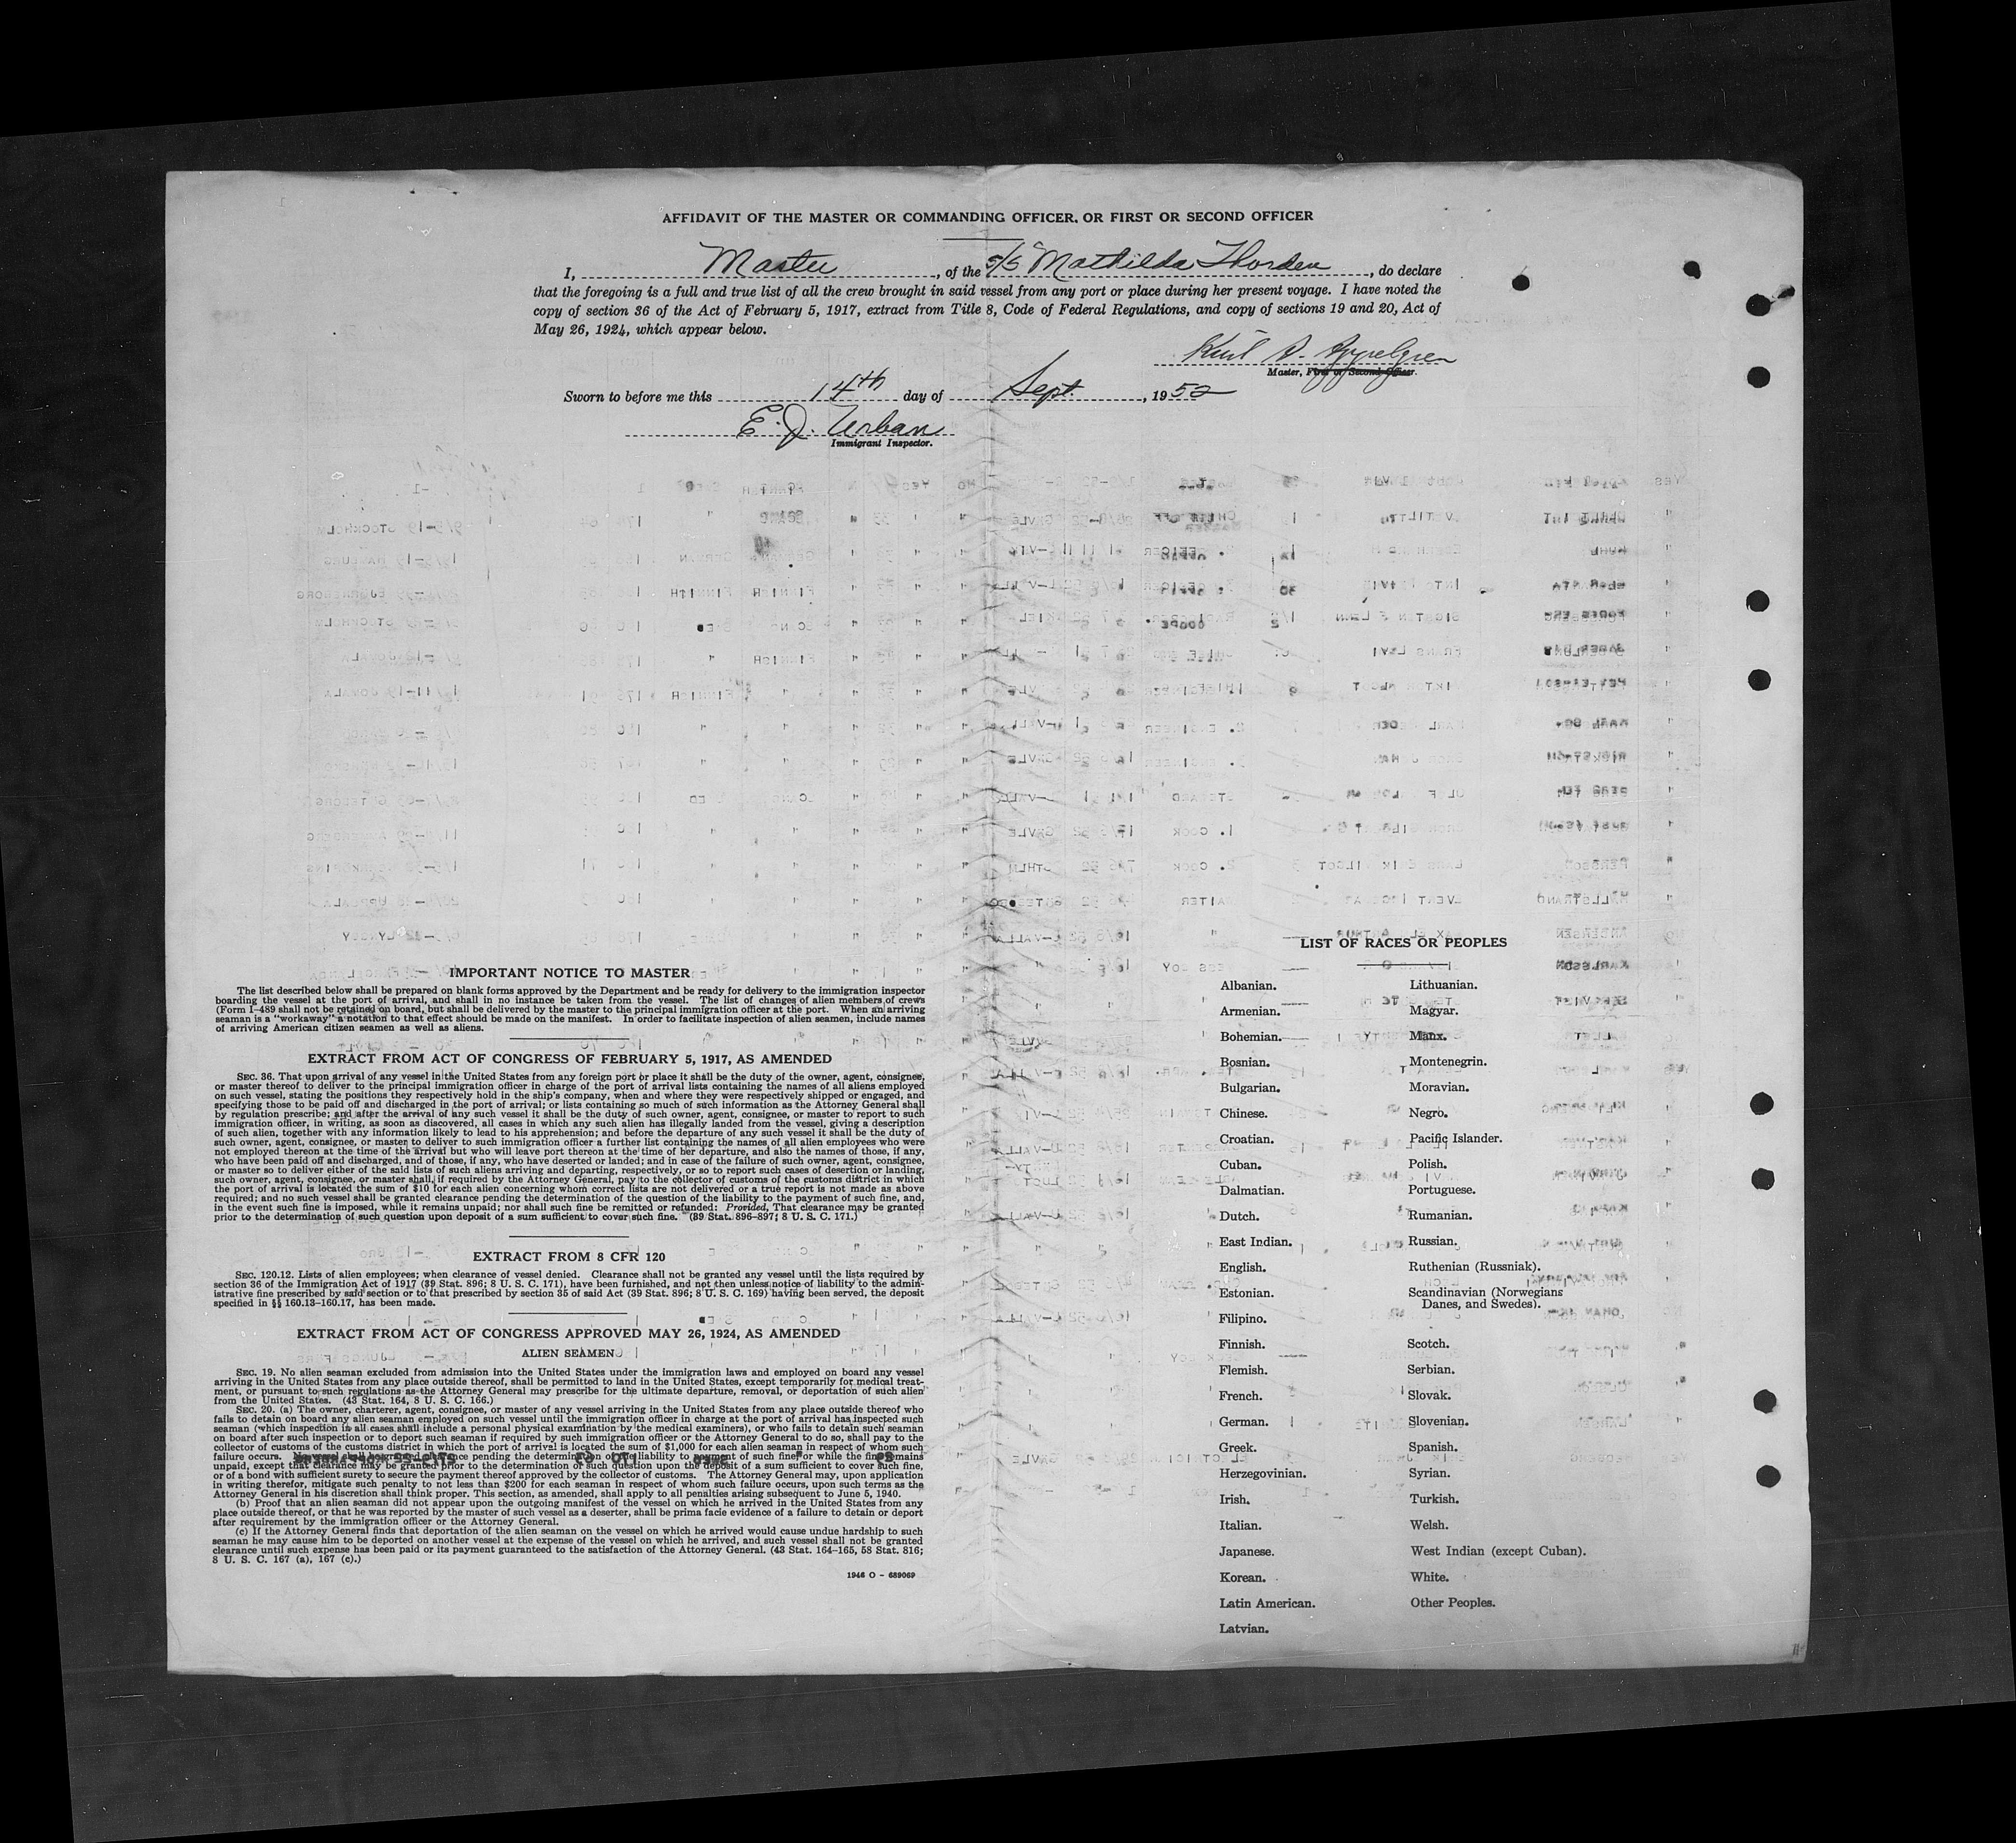 AFFIDAVIT OF THE MASTER OR COMMANDING OFFICER, OR FIRST OR SECOND OFFICER
I, Master, of the S/S "Mathilda Thorden, do declare
that the foregoing is a full and true list of all the crew brought in said vessel from any port or place during her present voyage. I have noted the
copy of section 36 of the Act of February 5, 1917, extract from Title 8, Code of Federal Regulations, and copy of sections 19 and 20, Act of
May 26, 1924, which appear below.
Master, First or Second Officer.
Sworn to before me this 14th day of Sept., 1952
E. J. Urban
Immigrant Inspector.
IMPORTANT NOTICE TO MASTER
The list described below shall be prepared on blank forms approved by the Department and be ready for delivery to the immigration inspector
boarding the vessel at the port of arrival, and shall in no instance be taken from the vessel. The list of changes of alien members of crews
(Form I-489 shall not be retained on board, but shall be delivered by the master to the principal immigration officer at the port. When an arriving
seaman is a "workaway" a notation to that effect should be made on the manifest. In order to facilitate inspection of alien seamen, include names
of arriving American citizen seamen as well as aliens.
EXTRACT FROM ACT OF CONGRESS OF FEBRUARY 5, 1917, AS AMENDED
SEC. 36. That upon arrival of any vessel in the United States from any foreign port or place it shall be the duty of the owner, agent, consignee,
or master thereof to deliver to the principal immigration officer in charge of the port of arrival lists containing the names of all aliens employed
on such vessel, stating the positions they respectively hold in the ship's company, when and where they were respectively shipped or engaged, and
specifying those to be paid off and discharged in the port of arrival; or lists containing so much of such information as the Attorney General shall
by regulation prescribe; and after the arrival of any such vessel it shall be the duty of such owner, agent, consignee, or master to report to such
immigration officer, in writing, as soon as discovered, all cases in which any such alien has illegally landed from the vessel, giving a description
of such alien, together with any information likely to lead to his apprehension; and before the departure of any such vessel it shall be the duty of
such owner, agent, consignee, or master to deliver to such immigration officer a further list containing the names of all alien employees who were
not employed thereon at the time of the arrival but who will leave port thereon at the time of her departure, and also the names of those, if any,
who have been paid off and discharged, and of those, if any, who have deserted or landed; and in case of the failure of such owner, agent, consignee,
or master so to deliver either of the said lists of such aliens arriving and departing, respectively, or so to report such cases of desertion or landing,
such owner, agent, consignee, or master shall, if required by the Attorney General, pay to the collector of customs of the customs district in which
the port of arrival is located the sum of $10 for each alien concerning whom correct lists are not delivered or a true report is not made as above
required; and no such vessel shall be granted clearance pending the determination of the question of the liability to the payment of such fine, and,
in the event such fine is imposed, while it remains unpaid; nor shall such fine be remitted or refunded: Provided, That clearance may be granted
prior to the determination of such question upon deposit of a sum sufficient to cover such fine. (39 Stat. 896-897; 8 U. S. C. 171.)
EXTRACT FROM 8 CFR 120
SEC. 120.12. Lists of alien employees; when clearance of vessel denied. Clearance shall not be granted any vessel until the lists required by
section 36 of the Immigration Act of 1917 (39 Stat. 896; 8 U. S. C. 171), have been furnished, and not then unless notice of liability to the admin-
istrative fine prescribed by said section or to that prescribed by section 35 of said Act (39 Stat. 896; 8 U. S. C. 169) having been served, the deposit
specified in §§ 160.13-160.17, has been made.
EXTRACT FROM ACT OF CONGRESS APPROVED MAY 26, 1924, AS AMENDED
ALIEN SEAMEN
SEC. 19. No alien seaman excluded from admission into the United States under the immigration laws and employed on board any vessel
arriving in the United States from any place outside thereof, shall be permitted to land in the United States, except temporarily for medical treat-
ment, or pursuant to such regulations as the Attorney General may prescribe for the ultimate departure, removal, or deportation of such alien
from the United States. (43 Stat. 164, 8 U. S. C. 166.)
SEC. 20. (a) The owner, charterer, agent, consignee, or master of any vessel arriving in the United States from any place outside thereof who
fails to detain on board any alien seaman employed on such vessel until the immigration officer in charge at the port of arrival has inspected such
seaman (which inspection in all cases shall include a personal physical examination by the medical examiners), or who fails to detain such seaman
on board after such inspection or to deport such seaman if required by such immigration officer or the Attorney General to do so, shall pay to the
collector of customs of the customs district in which the port of arrival is located the sum of $1,000 for each alien seaman in respect of whom such
failure occurs. No vessel shall be granted clearance pending the determination of the liability to the payment of such fine, or while the fine remains
unpaid, except that clearance may be granted prior to the determination of such question upon the deposit of a sum sufficient to cover such fine,
or of a bond with sufficient surety to secure the payment thereof approved by the collector of customs. The Attorney General may, upon application
in writing therefor, mitigate such penalty to not less than $200 for each seaman in respect of whom such failure occurs, upon such terms as the
Attorney General in his discretion shall think proper. This section, as amended, shall apply to all penalties arising subsequent to June 5, 1940.
(b) Proof that an alien seaman did not appear upon the outgoing manifest of the vessel on which he arrived in the United States from any
place outside thereof, or that he was reported by the master of such vessel as a deserter, shall be prima facie evidence of a failure to detain or deport
after requirement by the immigration officer or the Attorney General.
(c) If the Attorney General finds that deportation of the alien seaman on the vessel on which he arrived would cause undue hardship to such
seaman he may cause him to be deported on another vessel at the expense of the vessel on which he arrived, and such vessel shall not be granted
clearance until such expense has been paid or its payment guaranteed to the satisfaction of the Attorney General. (43 Stat. 164-165, 58 Stat. 816;
8 U. S. C. 167 (a), 167 (c).)
1946 O - 689069
LIST OF RACES OR PEOPLES
Albanian.
Armenian.
Bohemian.
Bosnian.
Bulgarian.
Chinese.
Croatian.
Cuban.
Dalmatian.
Dutch.
East Indian.
English.
Estonian.
Filipino.
Finnish.
Flemish.
French.
German.
Greek.
Herzegovinian.
Irish.
Italian.
Japanese.
Korean.
Latin American.
Latvian.
Lithuanian.
Magyar.
Manx.
Montenegrin.
Moravian.
Negro.
Pacific Islander.
Polish.
Portuguese.
Rumanian.
Russian.
Ruthenian (Russniak).
Scandinavian (Norwegians
Danes, and Swedes).
Scotch.
Serbian.
Slovak.
Slovenian.
Spanish.
Syrian.
Turkish.
Welsh.
West Indian (except Cuban).
White.
Other Peoples.